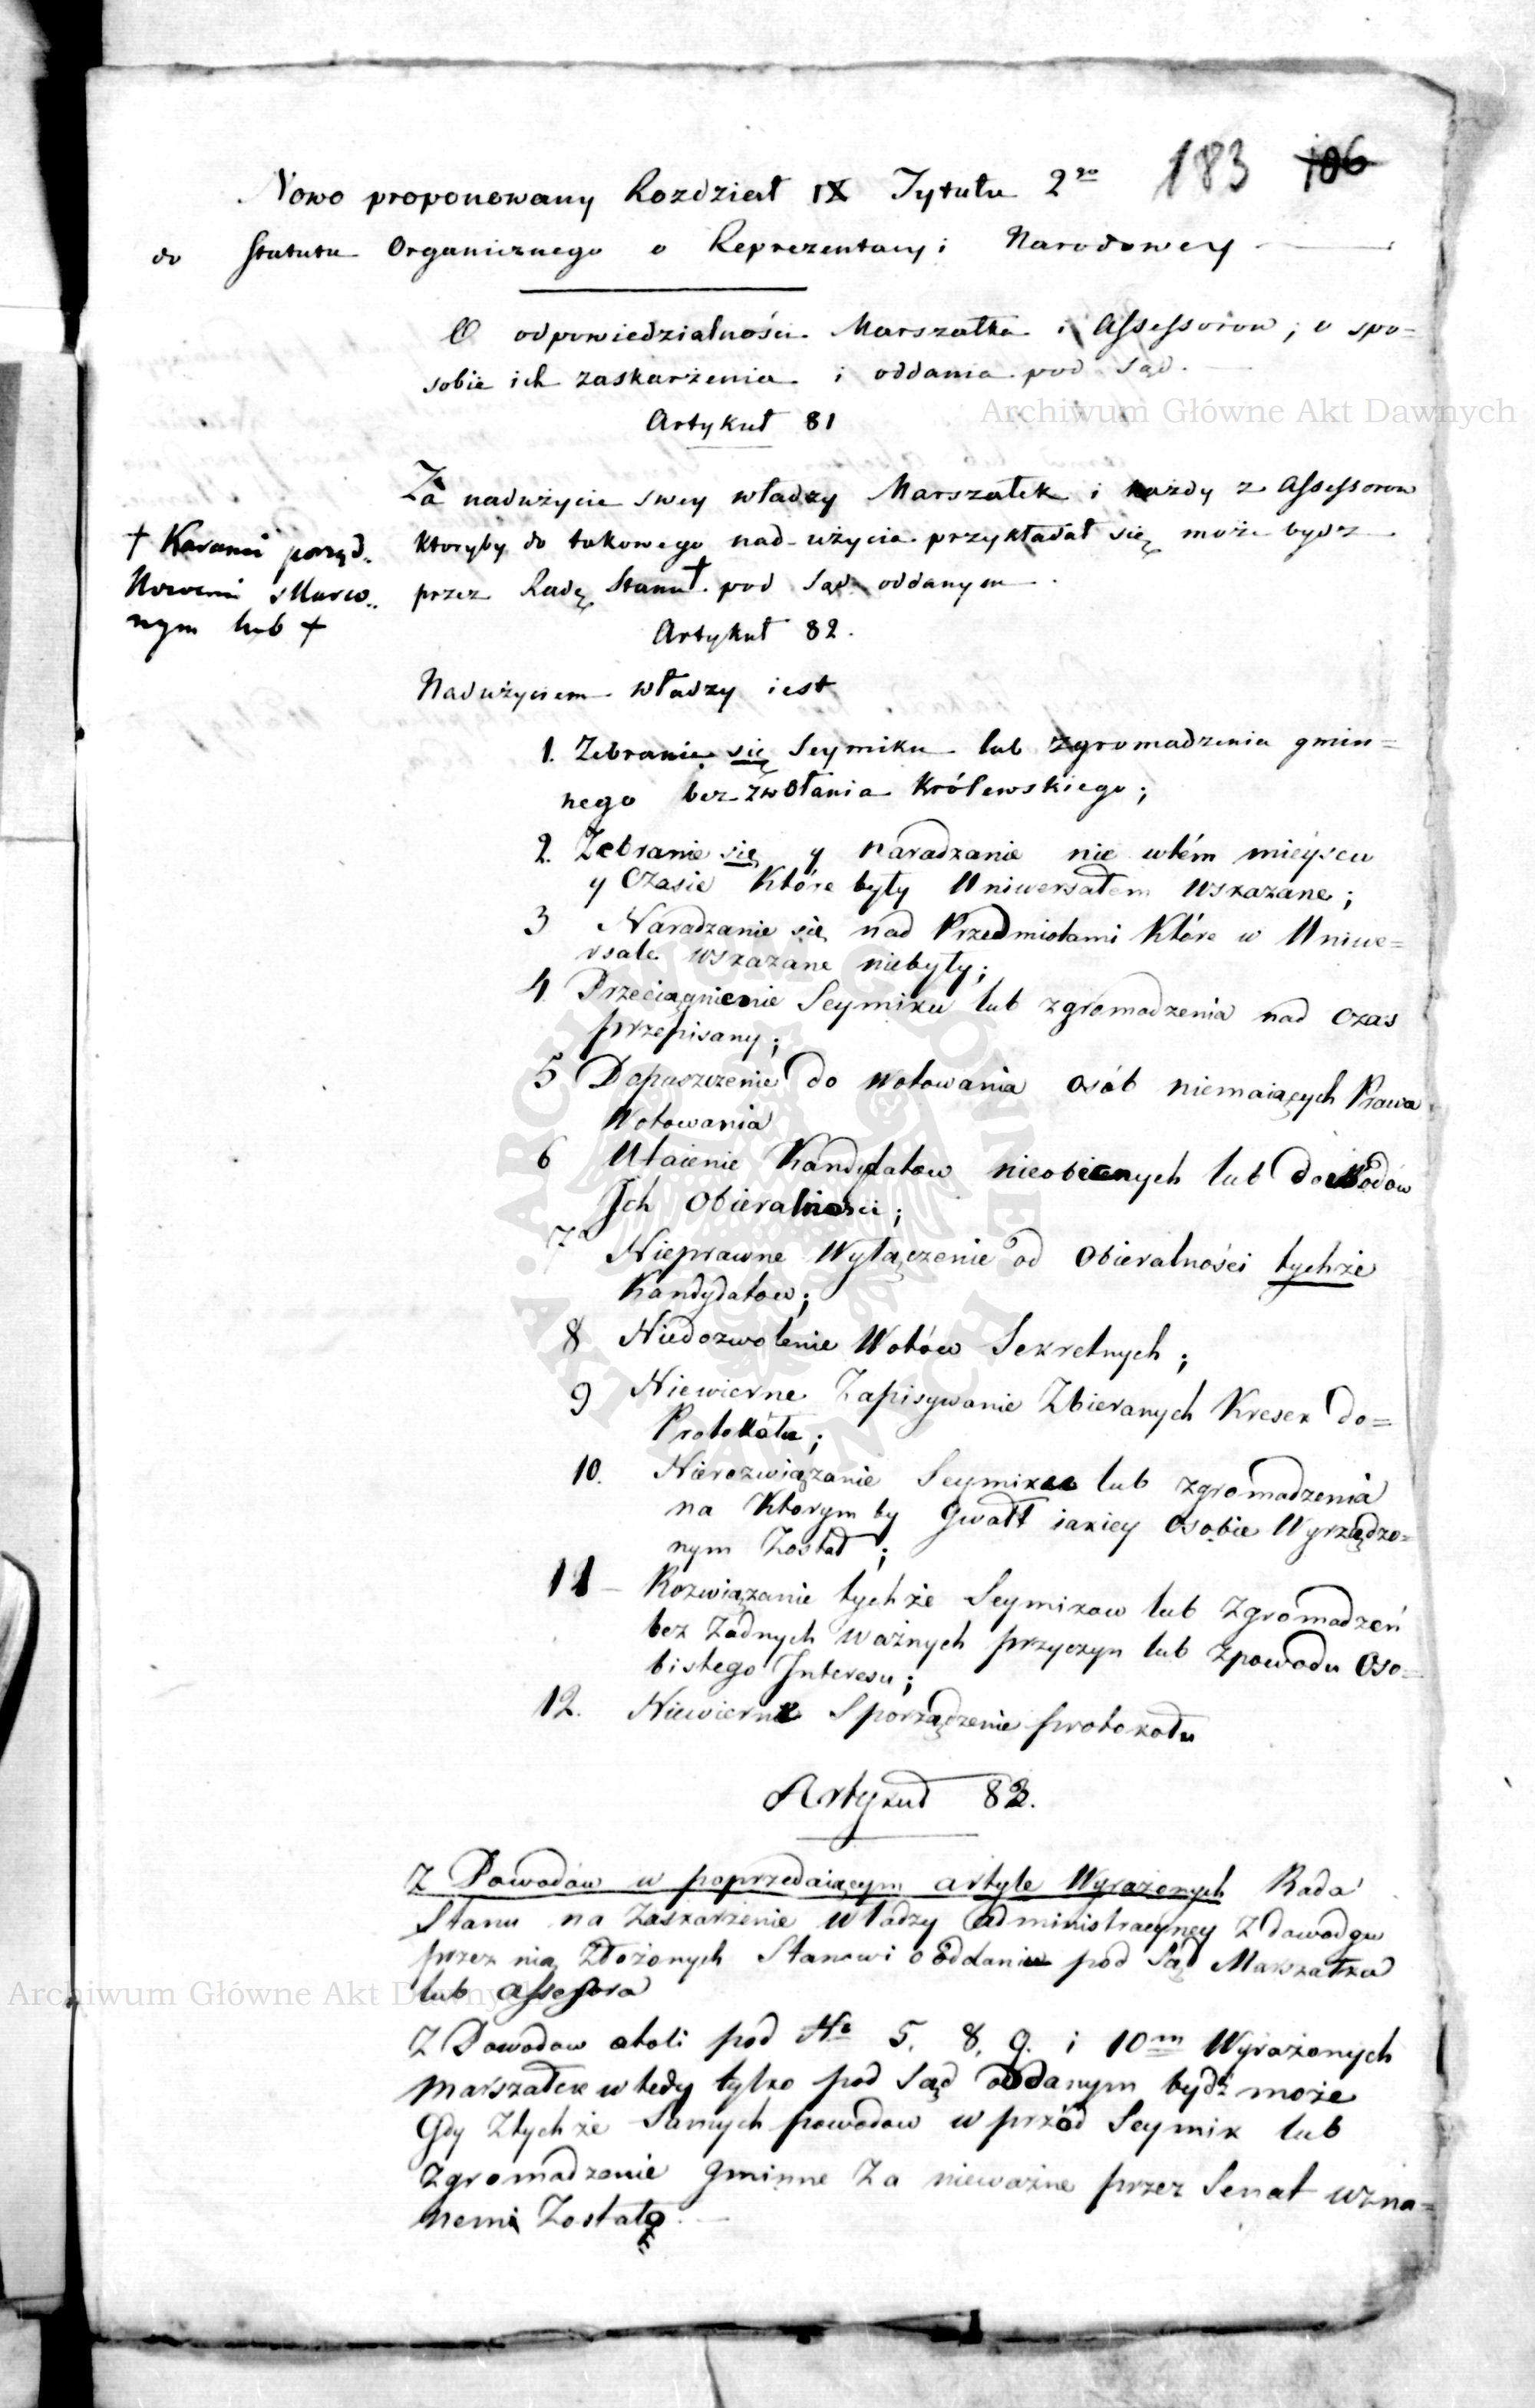 183 106
Nowo proponowany Rozdział IX Tytułu 2go
do Statutu Organicznego o Reprezentacyi Narodowey
O odpowiedzialności Marszałka i Assessorow; o spo=
sobie ich zaskarżenia i oddania pod Sąd.
Archiwum Główne Akt Dawnych
Artykuł 81
Za nadużycie swey władzy Marszałek i każdy z Assessorow
ktoryby do takowego nad-użycia przykładał się może bydz
przez Radę Stanu † pod Sąd oddanym.
† Karami porząd..
kowemi
nym lub †
Artykuł 82.
Nadużyciem władzy iest
1. Zebranie się Seymiku lub zgromadzenia gmin=
nego bez zwołania Królewskiego;
2. Zebranie się y naradzanie nie wtém mieyscu
y Czasie Które były Uniwersałem wskazane;
3 Naradzanie się nad Przedmiotami Które w Uniwe=
rsale wskazane niebyły;
4. Przeciągnienie Seymiku lub zgromadzenia nad czas
przepisany;
5 Dopuszczenie do wotowania osób niemaiących Prawa
Wotowania
6 Utaienie Kandydatow nieobecnych lub dowodów
Ich Obieralności;
7 Nieprawne Wyłączenie od Obieralności tychże
Kandydatow;
8 Niedozwolenie Wotów Sekretnych;
9 Niewierne Zapisywanie Zbieranych Kresek do=
Protokółu;
10. Nierozwiązanie Seymiku lub zgromadzenia
na Ktorym by gwałt iakiey osobie Wyrządzo=
nym Został;
11 – Rozwiązanie tychże Seymikow lub Zgromadzeń
bez Żadnych ważnych przyczyn lub zpowodu oso=
bistego Interesu;
12. Niewierne Sporządzenie protokołu
Artykuł 83.
Z Powodów w poprzedaiącym artyle Wyrażonych Rada
Stanu na Zaskarżenie Władzy administracyney Z dowodow
przez nią Złożonych Stanowi o oddaniu pod Sąd Marszałka
lub Assessora
Archiwum Główne Akt Dawnych
Z Powodow atoli pod No 5. 8. 9. i 10m Wyrażonych
Marszałek wtedy tylko pod Sąd oddanym bydź może
Gdy Ztychże Samych powodow wprzód Seymik lub
Zgromadzenie gminne Za nieważne przez Senat uzna=
nemi Zostały.